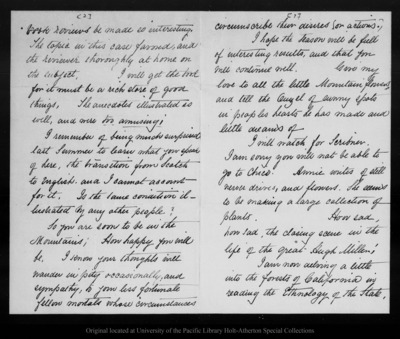 [2]
Book Reviews be made so interesting.
The topic in this case favored, and
the reviewer thoroughly at home on
the subject. I will get the book
for it must be a rich store of good
things. The anecdotes illustrated so
well, and were too amusing!
I remember of being much surprised
last summer to learn what you speak
of here, the transition from Scotch
to English, and I cannot account
for it. Is the same condition il-
lustrated by any other people?
So you are soon to be in the
Mountains! How happy you will
be. I know your thoughts will
wander in pity occasionally, and
sympathy, to your less fortunate
fellow mortals whose circumstances
[3]
circumscribe their desires (or actions).
I hope the season will be full
of interesting results, and that you
will continue well. Give my
love to all the little Mountain flowers
and tell the Angel of sunny spots
in peoples hearts he has made and
little dreams of
I will watch for Scribner.
I am sorry you will not be able to
go to Chico. Annie writes of still
more drives, and flowers. She seems
to be making a large collection of
plants. How sad,
how sad, the closing scene in the
life of the great Hugh Miller!
I am now delving a little
into the forests of California in
reading the Ethnology of the State,
Original located at University of the Pacific Library Holt-Atherton Special Collections